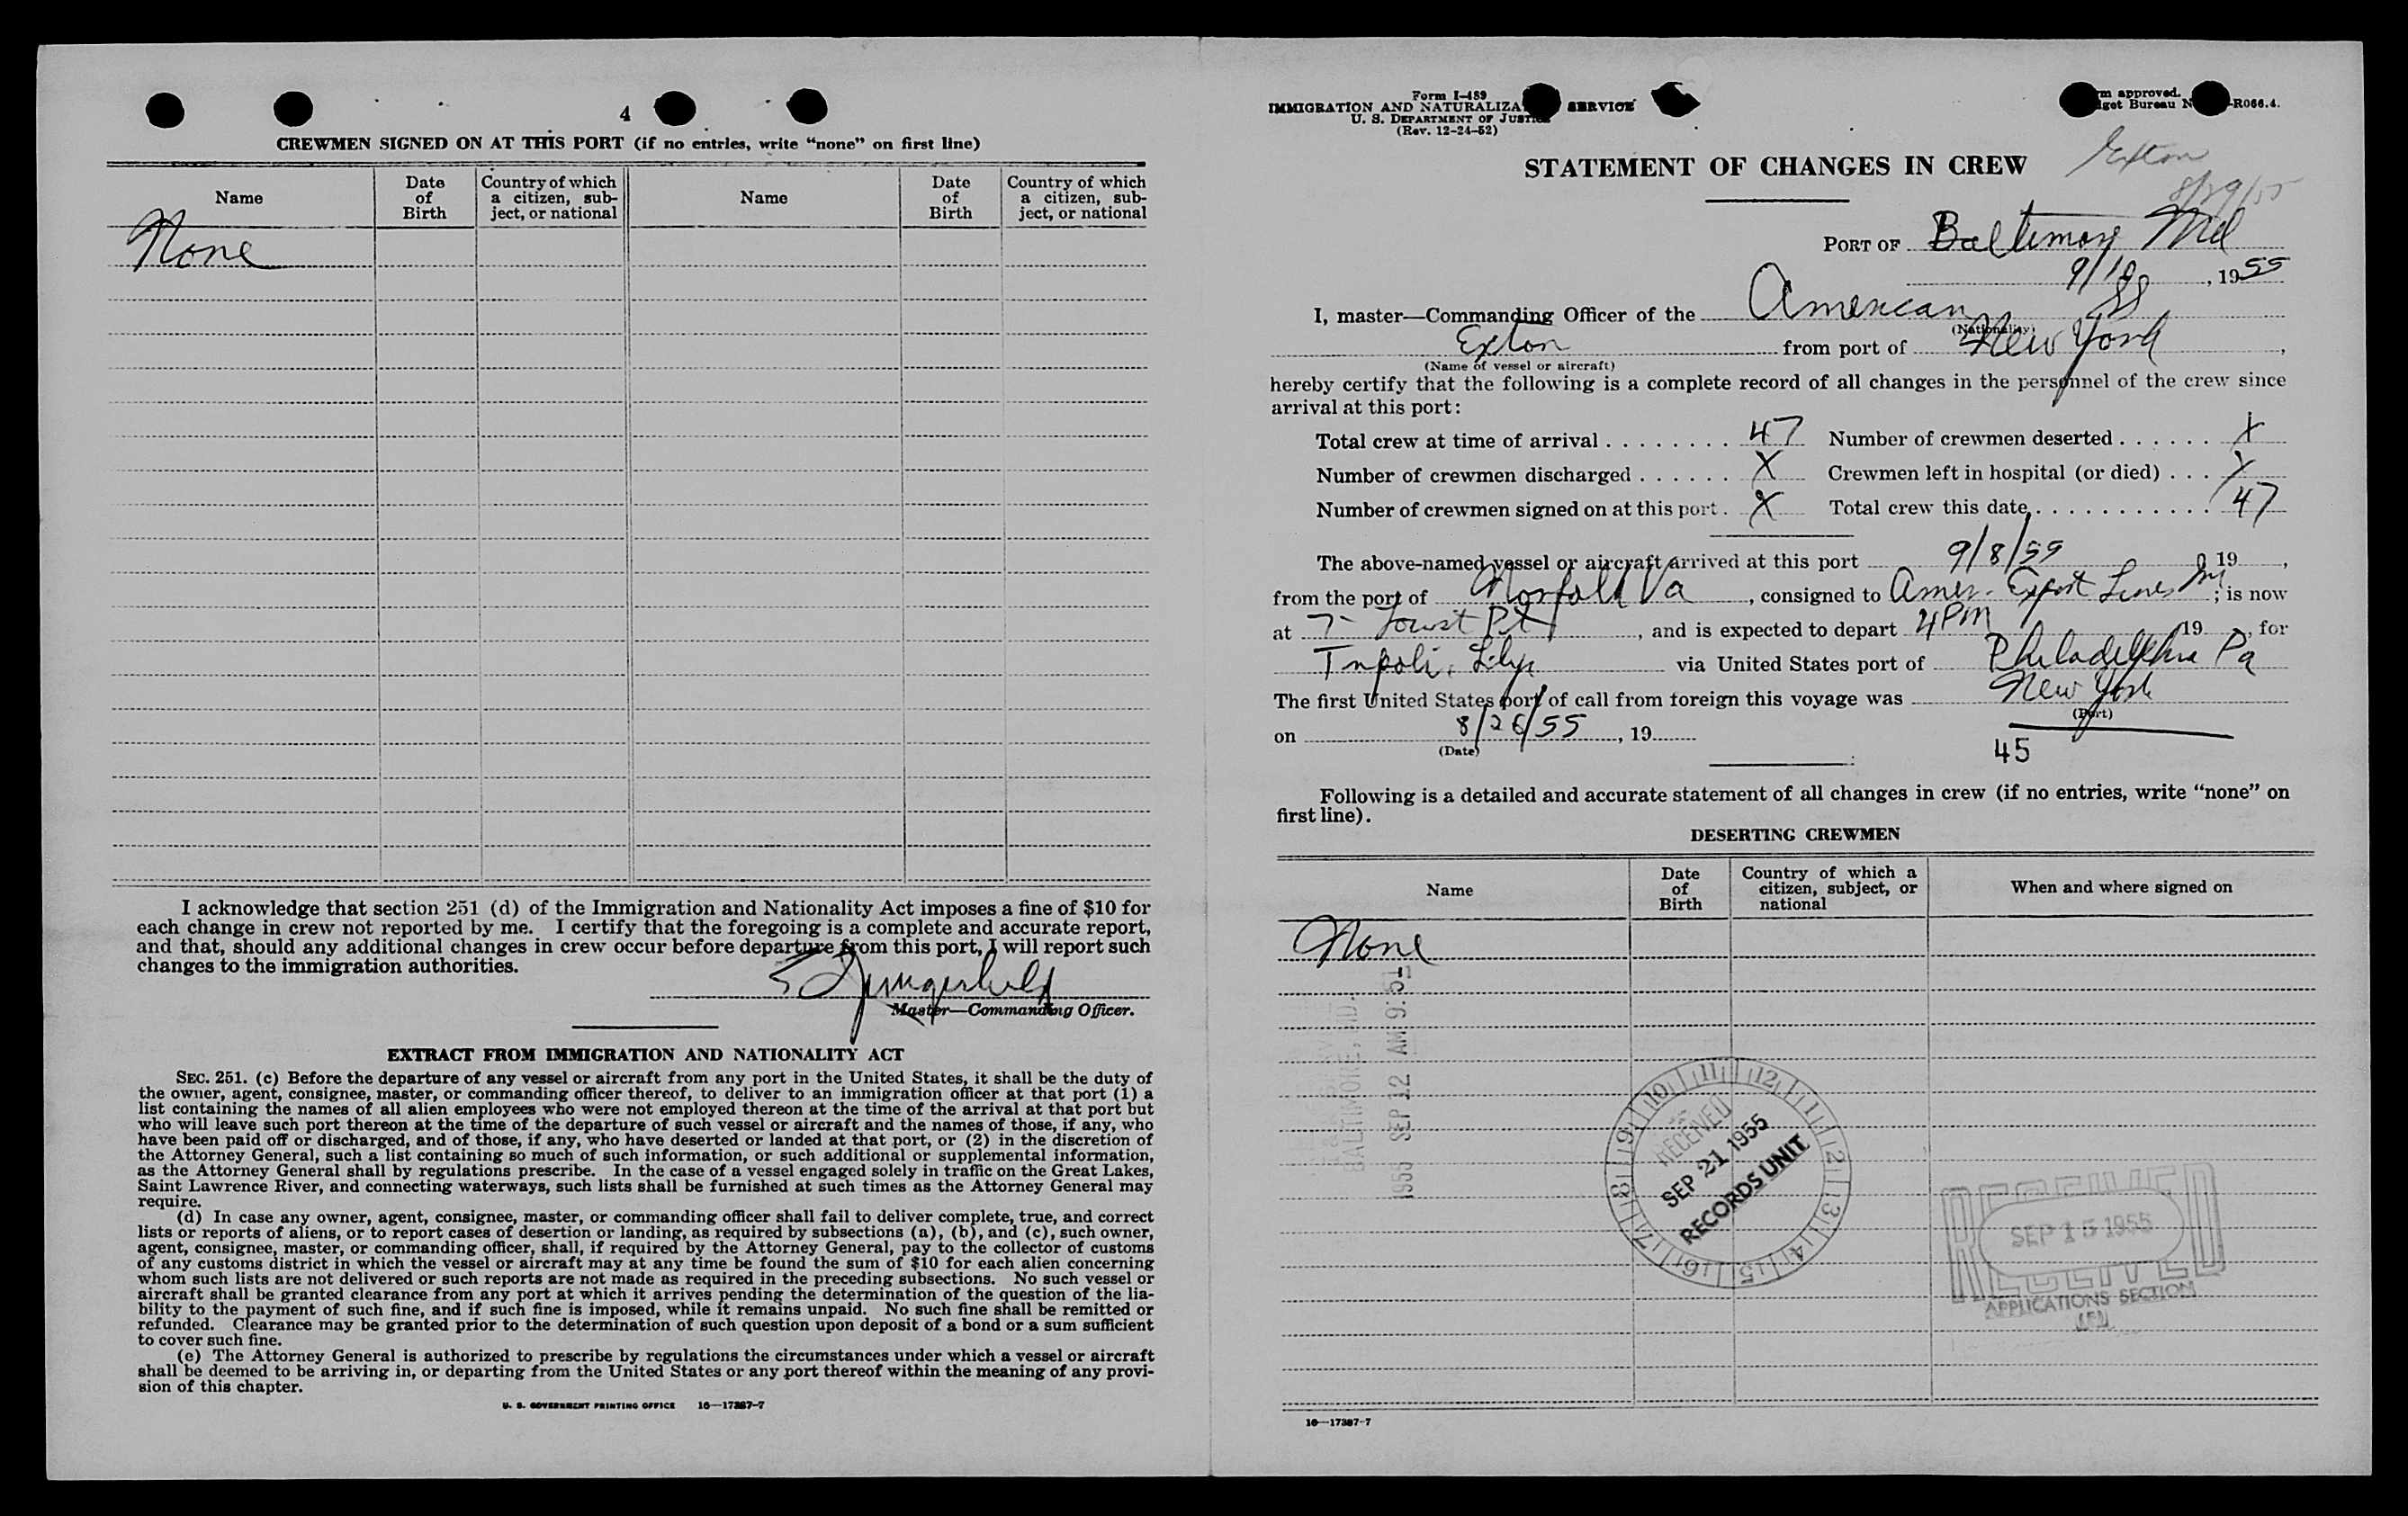 4
CREWMEN SIGNED ON AT THIS PORT (if no entries, write "none" on first line)
Name Date of Birth Country of which a citizen, sub- ject, or national Name Date of Birth Country of which a citizen, sub- ject, or national
None
I acknowledge that section 251 (d) of the Immigration and Nationality Act imposes a fine of $10 for
each change in crew not reported by me. I certify that the foregoing is a complete and accurate report,
and that, should any additional changes in crew occur before departure from this port, I will report such
changes to the immigration authorities.
Master—Commanding Officer.
EXTRACT FROM IMMIGRATION AND NATIONALITY ACT
SEC. 251. (c) Before the departure of any vessel or aircraft from any port in the United States, it shall be the duty of
the owner, agent, consignee, master, or commanding officer thereof, to deliver to an immigration officer at that port (1) a
list containing the names of all alien employees who were not employed thereon at the time of the arrival at that port but
who will leave such port thereon at the time of the departure of such vessel or aircraft and the names of those, if any, who
have been paid off or discharged, and of those, if any, who have deserted or landed at that port, or (2) in the discretion of
the Attorney General, such a list containing so much of such information, or such additional or supplemental information,
as the Attorney General shall by regulations prescribe. In the case of a vessel engaged solely in traffic on the Great Lakes,
Saint Lawrence River, and connecting waterways, such lists shall be furnished at such times as the Attorney General may
require.
(d) In case any owner, agent, consignee, master, or commanding officer shall fail to deliver complete, true, and correct
lists or reports of aliens, or to report cases of desertion or landing, as required by subsections (a), (b), and (c), such owner,
agent, consignee, master, or commanding officer, shall, if required by the Attorney General, pay to the collector of customs
of any customs district in which the vessel or aircraft may at any time be found the sum of $10 for each alien concerning
whom such lists are not delivered or such reports are not made as required in the preceding subsections. No such vessel or
aircraft shall be granted clearance from any port at which it arrives pending the determination of the question of the lia-
bility to the payment of such fine, and if such fine is imposed, while it remains unpaid. No such fine shall be remitted or
refunded. Clearance may be granted prior to the determination of such question upon deposit of a bond or a sum sufficient
to cover such fine.
(e) The Attorney General is authorized to prescribe by regulations the circumstances under which a vessel or aircraft
shall be deemed to be arriving in, or departing from the United States or any port thereof within the meaning of any provi-
sion of this chapter.
U. S. GOVERNMENT PRINTING OFFICE 16—17387-7
Form I-489
IMMIGRATION AND NATURALIZA SERVICE
U. S. DEPARTMENT OF JUSTICE
(Rev. 12-24-52)
m approved.
get Bureau N -R066.4.
Exton
8/29/55
STATEMENT OF CHANGES IN CREW
PORT OF Baltimore Md
9/10, 1955
I, master—Commanding Officer of the American SS
(Nationality)
Exton from port of New York,
(Name of vessel or aircraft)
hereby certify that the following is a complete record of all changes in the personnel of the crew since
arrival at this port:
Total crew at time of arrival . . . . . . . . 47 Number of crewmen deserted . . . . . . X
Number of crewmen discharged . . . . . . X Crewmen left in hospital (or died) . . . X
Number of crewmen signed on at this port . X Total crew this date . . . . . . . . . . . 47
The above-named vessel or aircraft arrived at this port 9/8/55 19 ,
from the port of Norfolk Va, consigned to Amer. Export Lines Inc; is now
at Pt, and is expected to depart 4PM 19 , for
Tripoli, Libya via United States port of Philadelphia Pa
The first United States port of call from foreign this voyage was New York
(Port)
on 8/26/55, 19
(Date)
45
Following is a detailed and accurate statement of all changes in crew (if no entries, write "none" on
first line).
DESERTING CREWMEN
Name Date of Birth Country of which a citizen, subject, or national When and where signed on
None
BALTIMORE, MD.
1955 SEP 12 AM 9:51
10 11 12 1 2 3 4 5 6 7 8 9
RECEIVED
SEP 21 1955
RECORDS UNIT
RECEIVED
SEP 15 1955
APPLICATIONS SECTION
16—17387-7